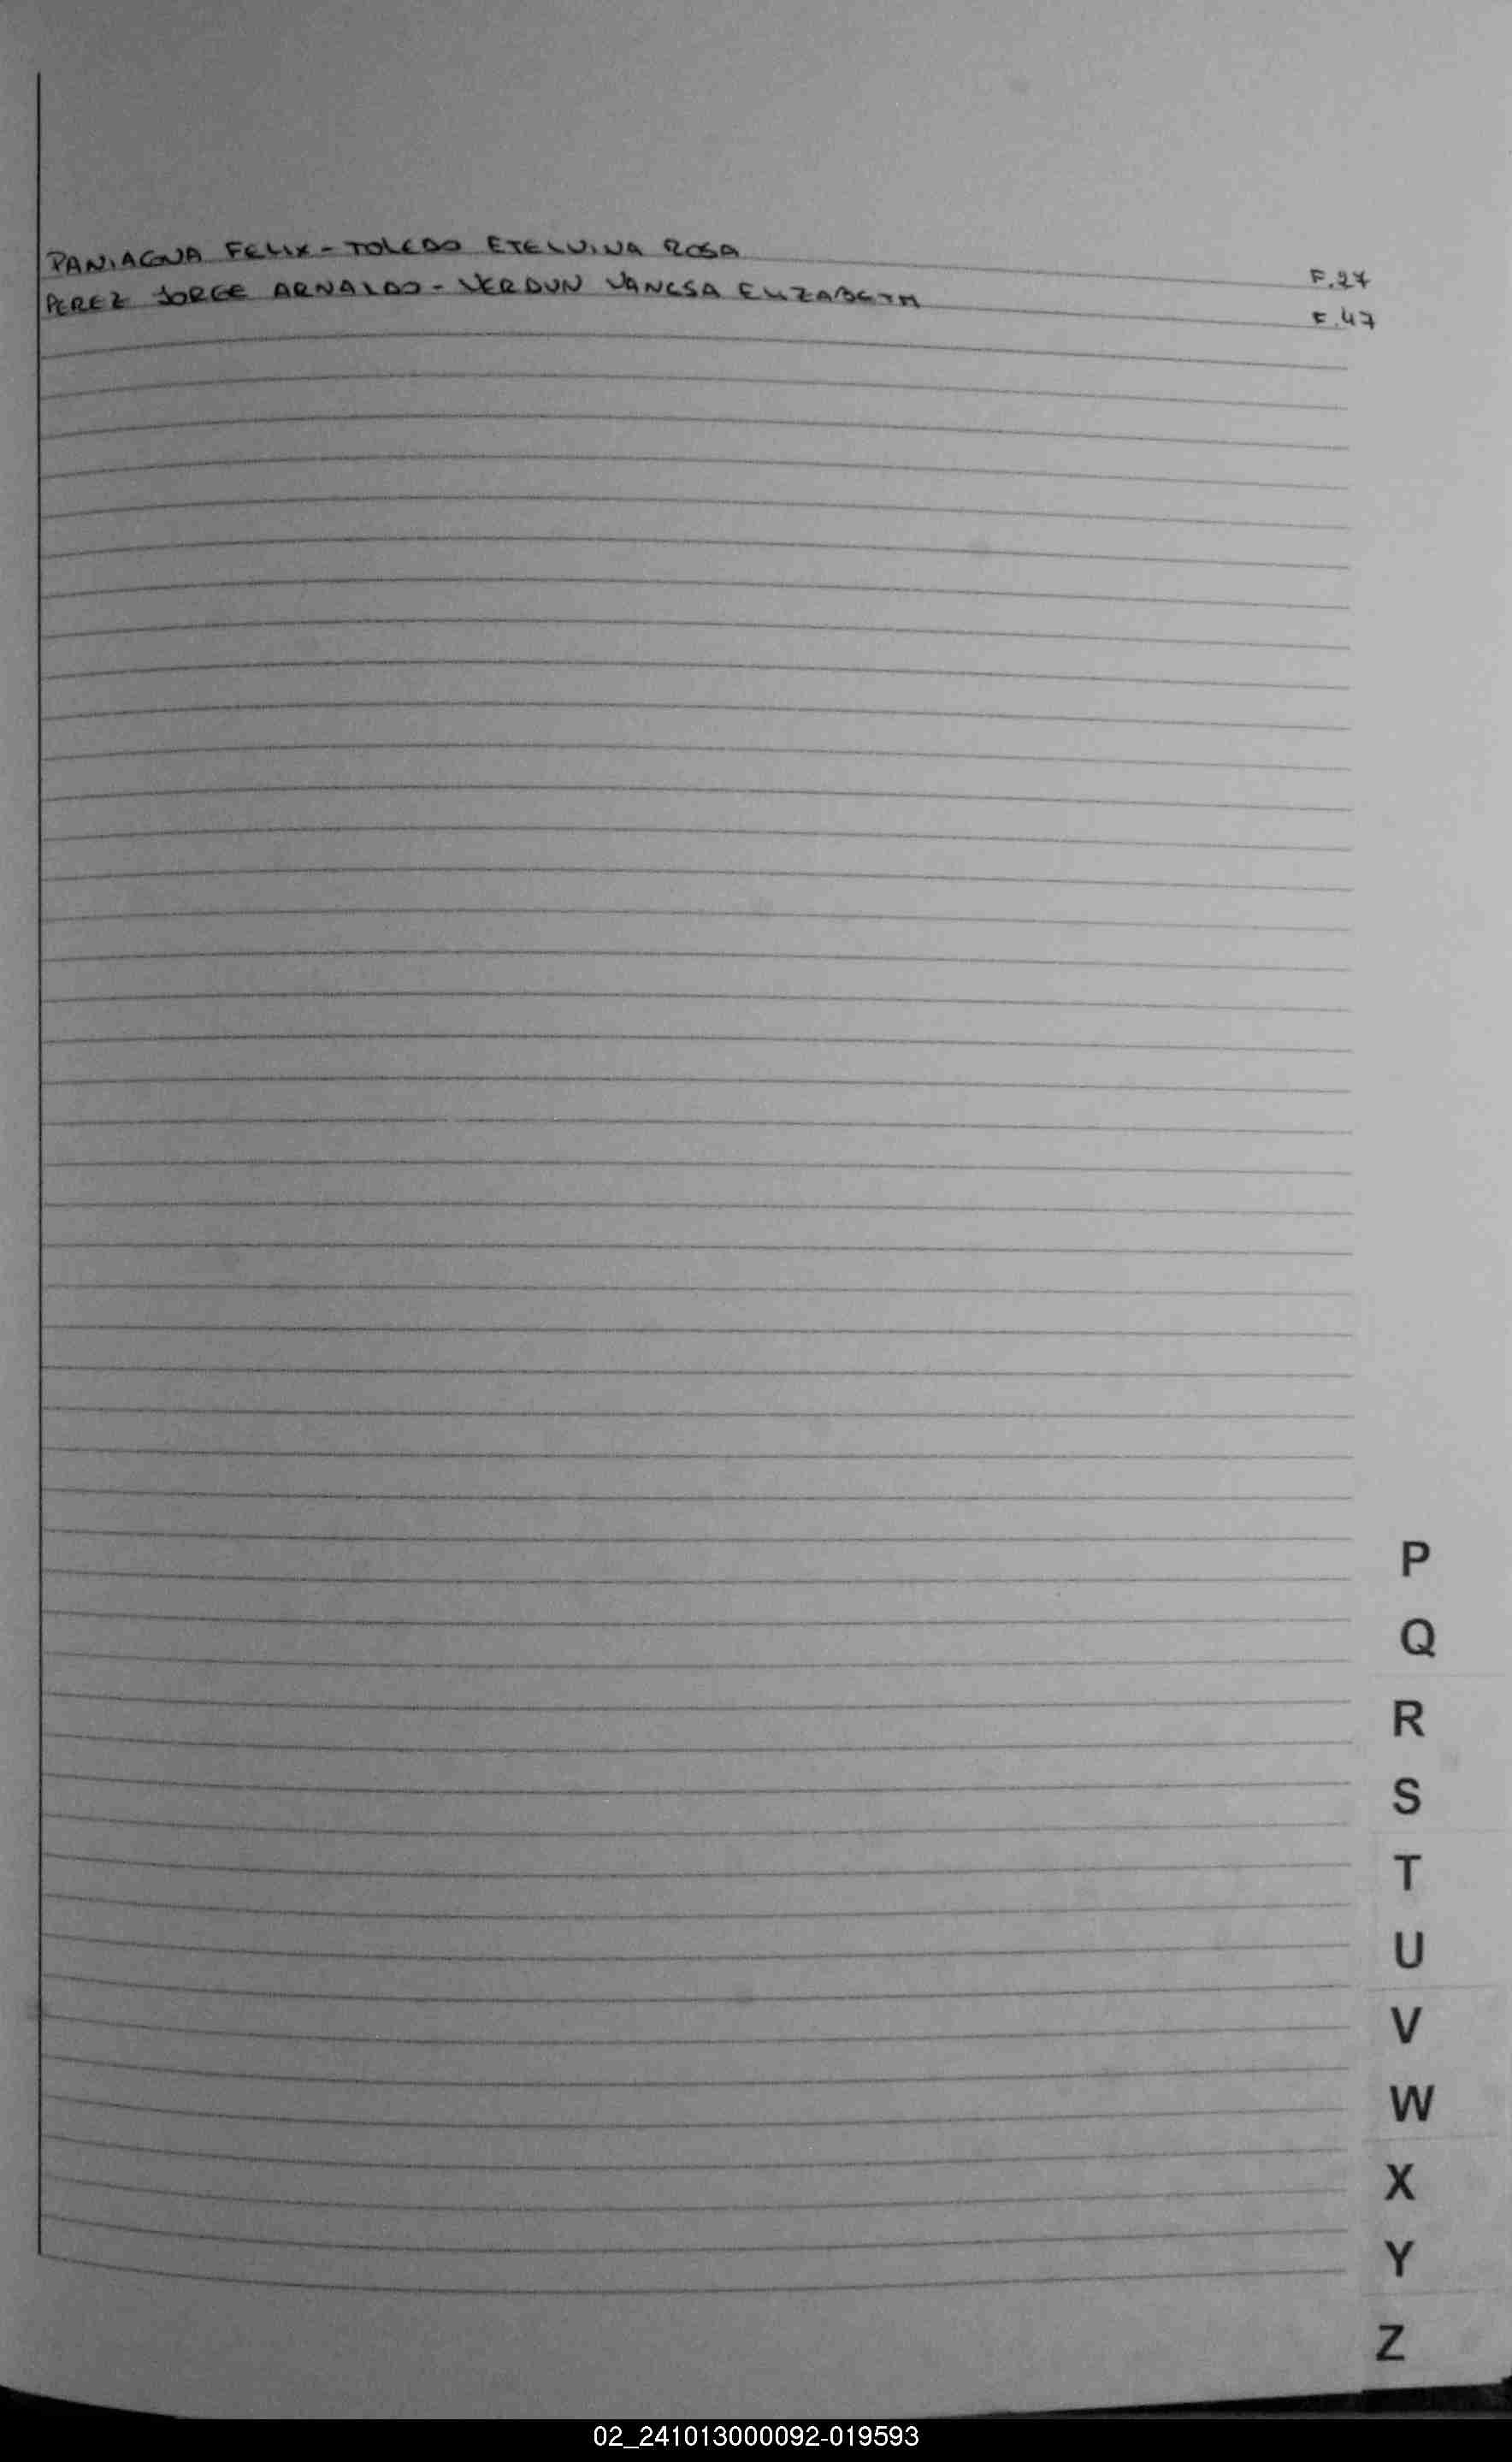 PANIAGUA FELIX - TOLEDO ETELVINA ROSA F.27
PEREZ JORGE ARNALDO - VERDUN VANESA ELIZABETH F.47
P
Q
R
S
T
U
V
W
X
Y
Z
02_241013000092-019593